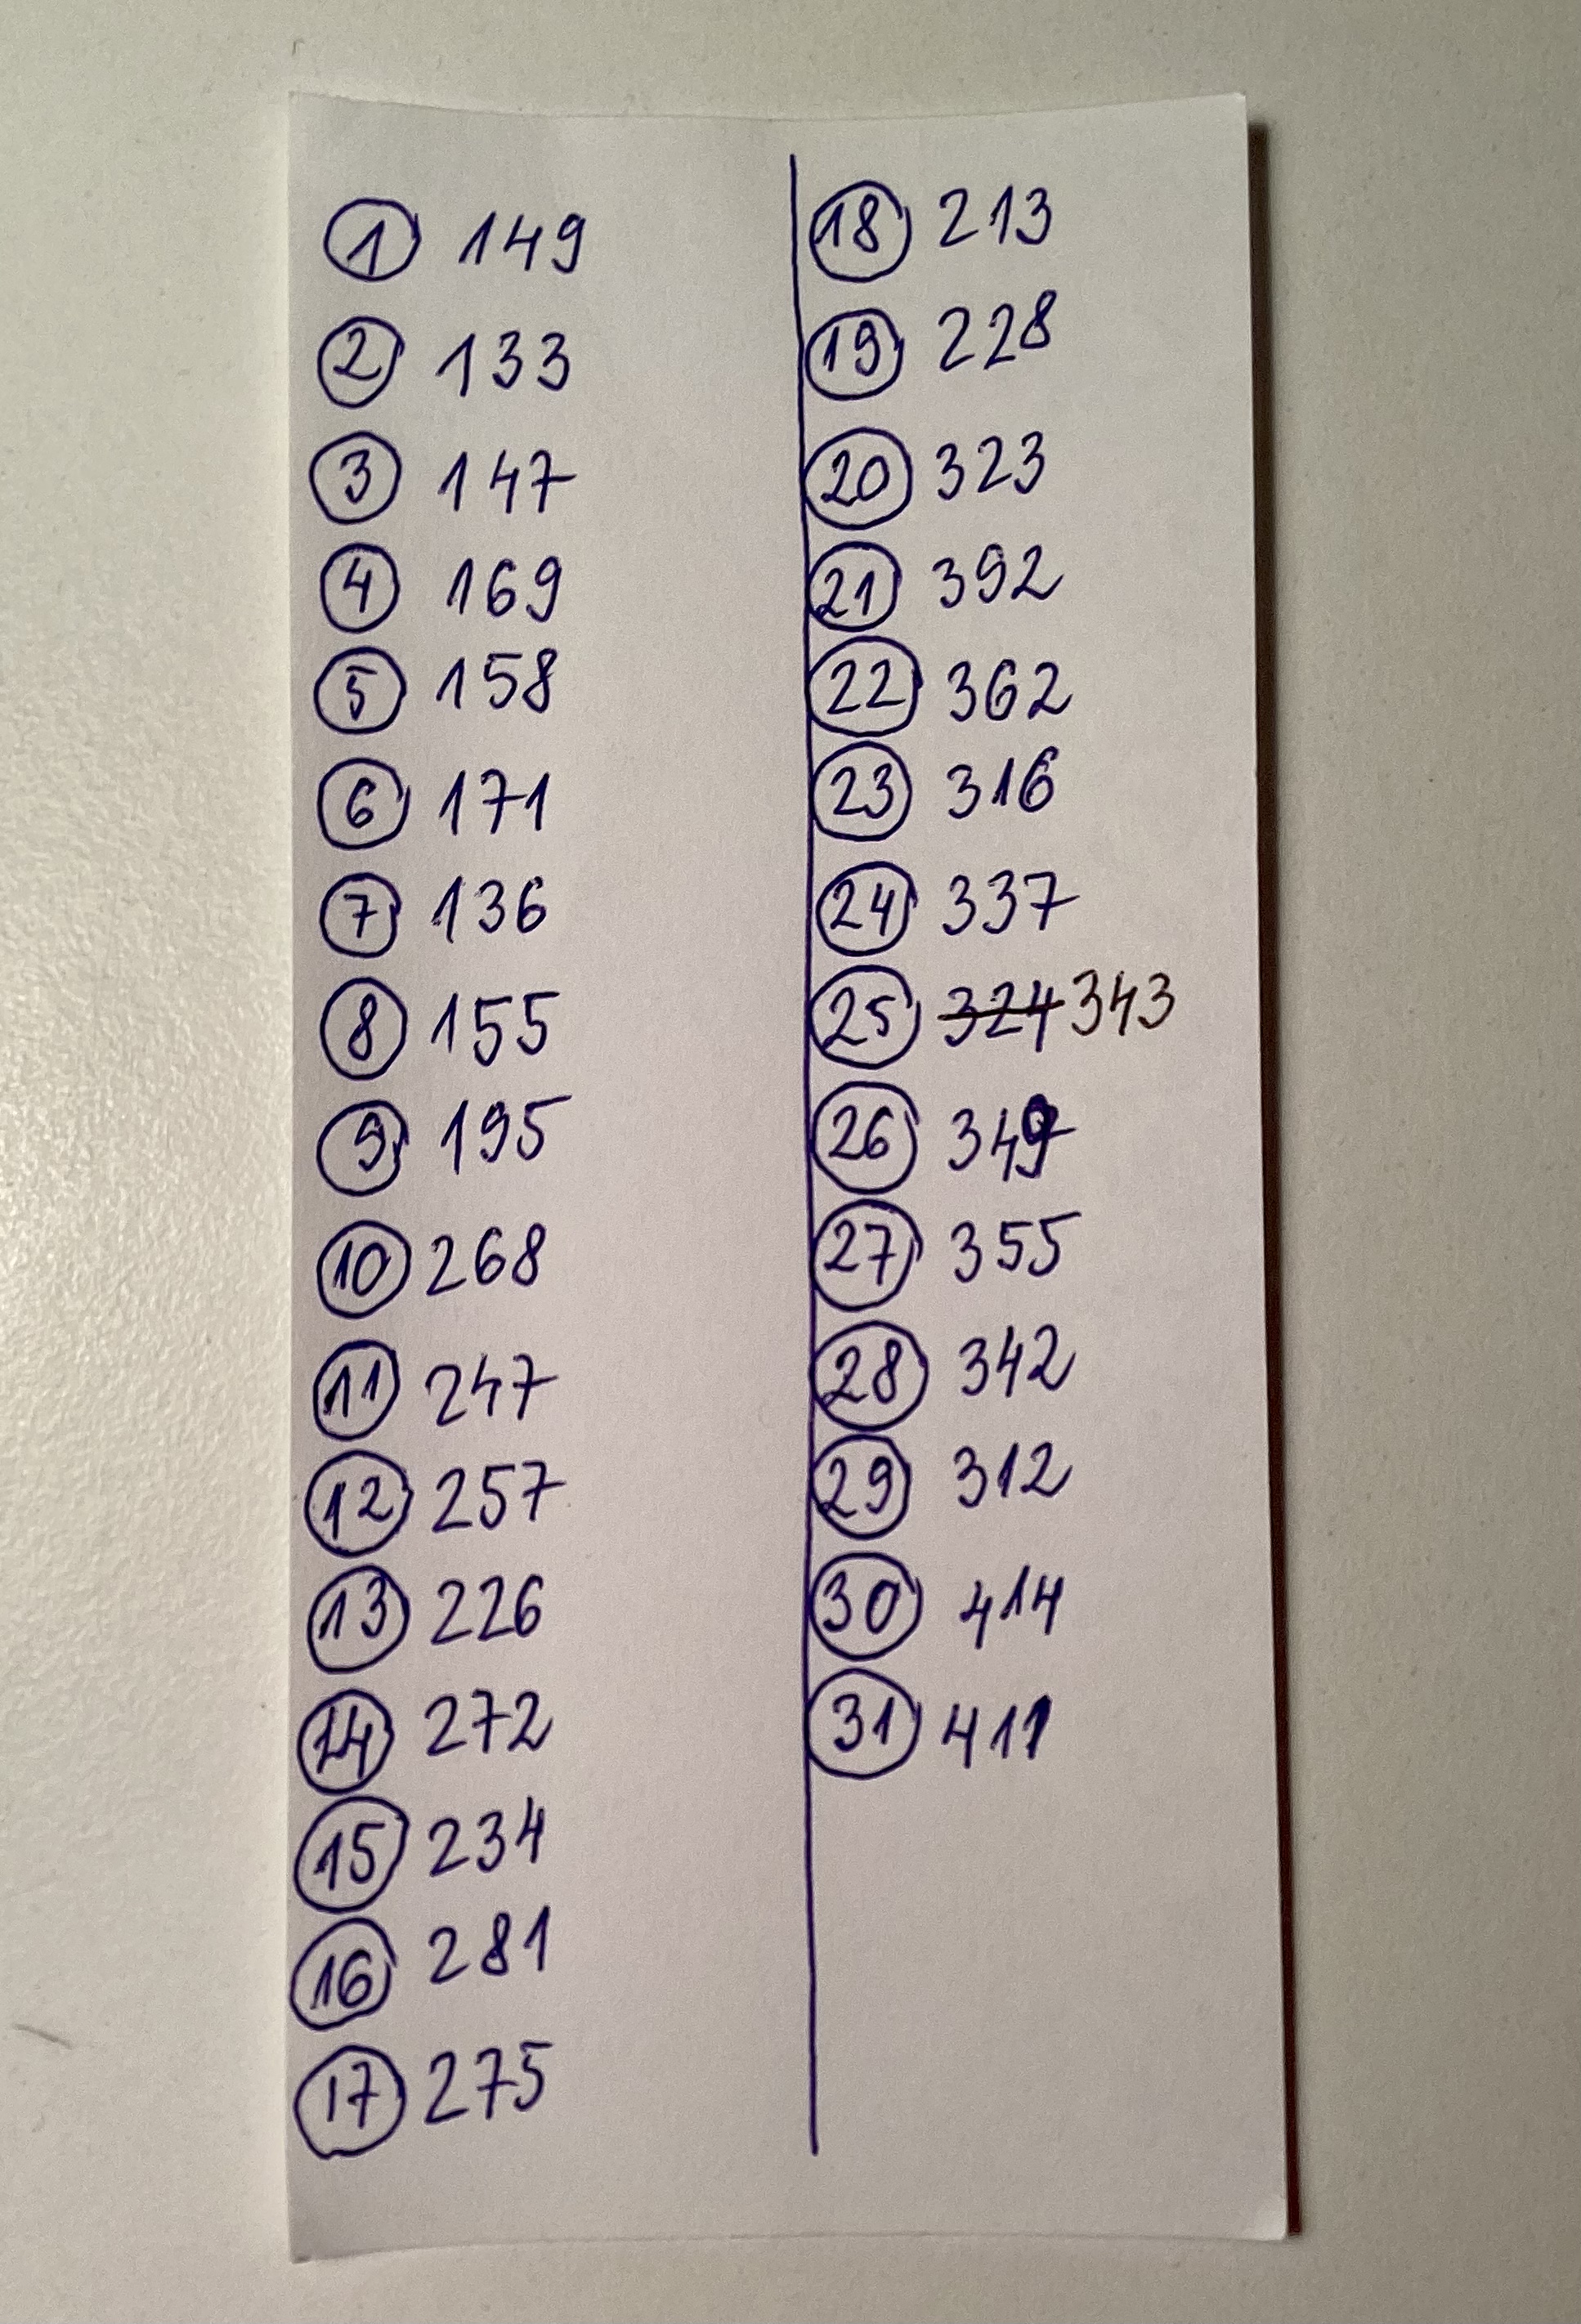 1 149
2 133
3 147
4 169
5 158
6 171
7 136
8 155
9 195
10 268
11 247
12 257
13 226
14 272
15 234
16 281
17 275
18 213
19 228
20 323
21 392
22 362
23 316
24 337
25 324 343
26 349
27 355
28 342
29 312
30 414
31 411